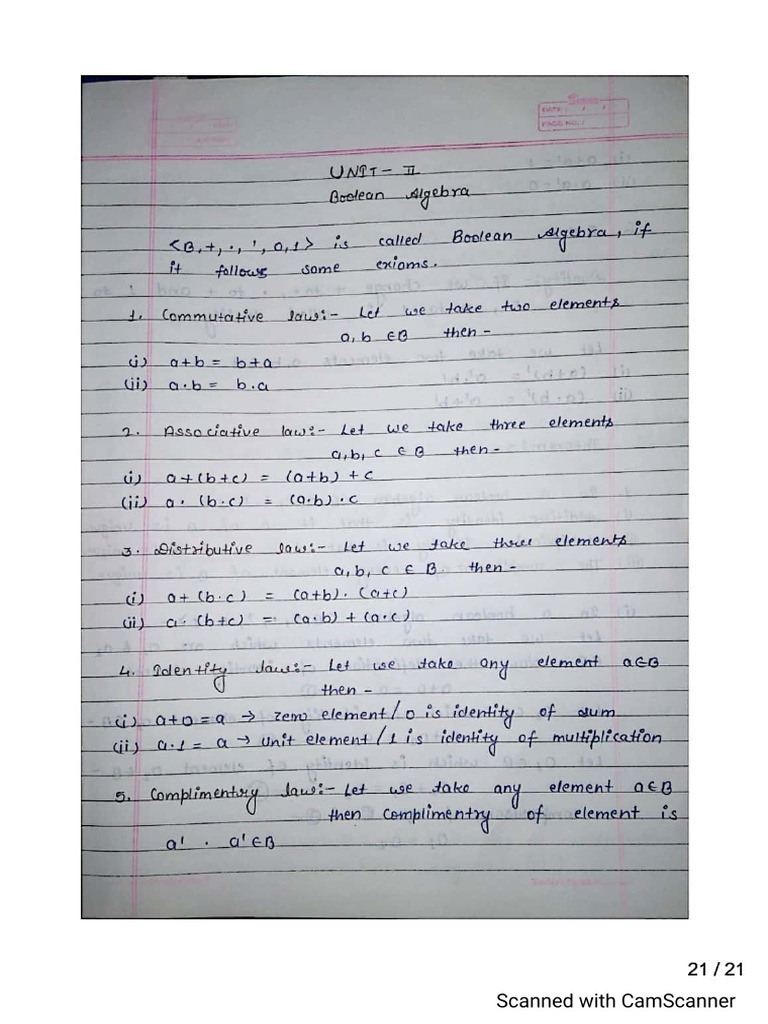 DATE: / /
PAGE NO.:
UNIT - II
Boolean Algebra
<B, +, ., ', 0, 1> is called Boolean Algebra, if
it follows some exioms.
1. Commutative law:- Let we take two elements
a, b ∈B then -
(i) a+b = b+a
(ii) a.b = b.a
2. Associative law:- Let we take three elements
a, b, c ∈ B then -
(i) a+(b+c) = (a+b)+c
(ii) a. (b.c) = (a.b).c
3. Distributive law:- Let we take three elements
a, b, c ∈ B then -
(i) a+(b.c) = (a+b).(a+c)
(ii) a.(b+c) = (a.b)+(a.c)
4. Identity law:- Let we take any element a∈B
then -
(i) a+0 = a → zero element/0 is identity of sum
(ii) a.1 = a → unit element/1 is identity of multiplication
5. Complimentry law:- Let we take any element a∈B
then complimentry of element is
a' . a'∈B
21 / 21
Scanned with CamScanner